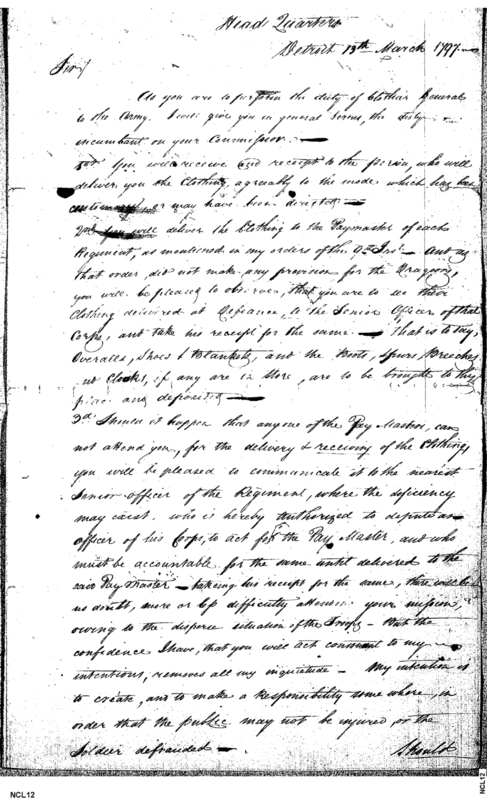 Head Quarters
Detroit 13th March 1797
Sir/
As you are to perform the duty of Clothier General
to the Army. I will give you in general terms, the duty
incumbent on your Commission.
1st You will receive and receipt to the person, who will
deliver you the Clothing, agreably to the mode which has been
customary or may have been directed
2nd You will deliver the Clothing to the Paymaster of each
Regiment, as mentioned in my orders of the 9th Inst. And as
that order did not make any provision for the Dragoons,
you will be pleased to observe, that you are to see their
Clothing delivered at Defiance, to the Senior Officer of that
Corps, and take his receipt for the same. That is to say,
Overalls, Shoes & Blankets, and the Boots, Spurs, Breeches
Cloaks, if any are in Store, are to be brought to this
place and deposited
3d Should it happen that anyone of the Pay Masters, can
not attend you, for the delivery & receiving of the Clothing,
you will be pleased to communicate it to the nearest
Senior officer of the Regiment, where the deficiency
may exist, who is hereby authorized to depute an
officer of his Corps, to act for the Pay Master, and who
must be accountable for the same until delivered to the
said Pay Master taking his receipt for the same, there will be
no doubt, more or less difficulty attending your mission,
owing to the disperse situation of the Troops - But the
confidence I have, that you will act consonant to my
intentions, removes all my inquietude - My intention is
to create, and to make a Responsibility some where, in
order that the public may not be injured, or the
Soldier defrauded
Should
NCL12
NCL12